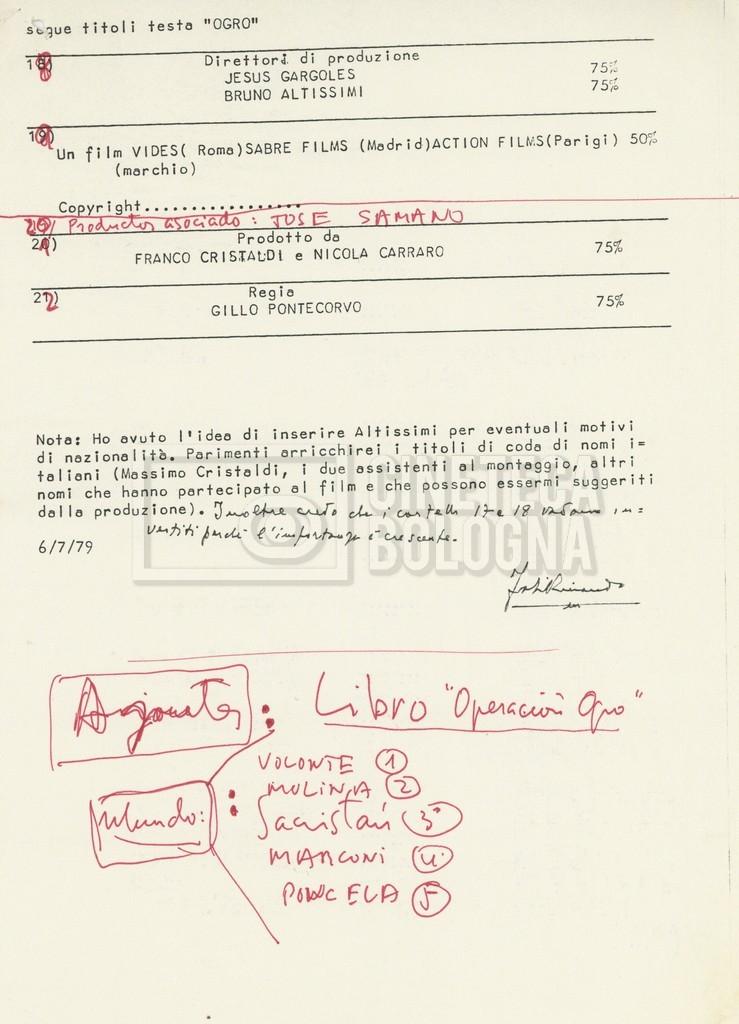 segue titoli testa "OGRO"
18)
Direttori di produzione
JESUS GARGOLES 75%
BRUNO ALTISSIMI 75%
19)
Un film VIDES( Roma)SABRE FILMS (Madrid)ACTION FILMS(Parigi) 50%
(marchio)
Copyright..................
20) Productor asociado : JOSE SAMANO
Prodotto da
FRANCO CRISTALDI e NICOLA CARRARO 75%
22)
Regia
GILLO PONTECORVO 75%
Nota: Ho avuto l'idea di inserire Altissimi per eventuali motivi
di nazionalità. Parimenti arricchirei i titoli di coda di nomi i=
taliani (Massimo Cristaldi, i due assistenti al montaggio, altri
nomi che hanno partecipato al film e che possono essermi suggeriti
dalla produzione). Inoltre credo che i cartelli 17 e 18 vadano in=
vertiti perché l'importanza è crescente.
6/7/79
CINETECA
BOLOGNA
: Libro "Operación Ogro"
VOLONTE 1
MOLINA 2
: Sacristán 3
MARCONI 4
PONCELA 5